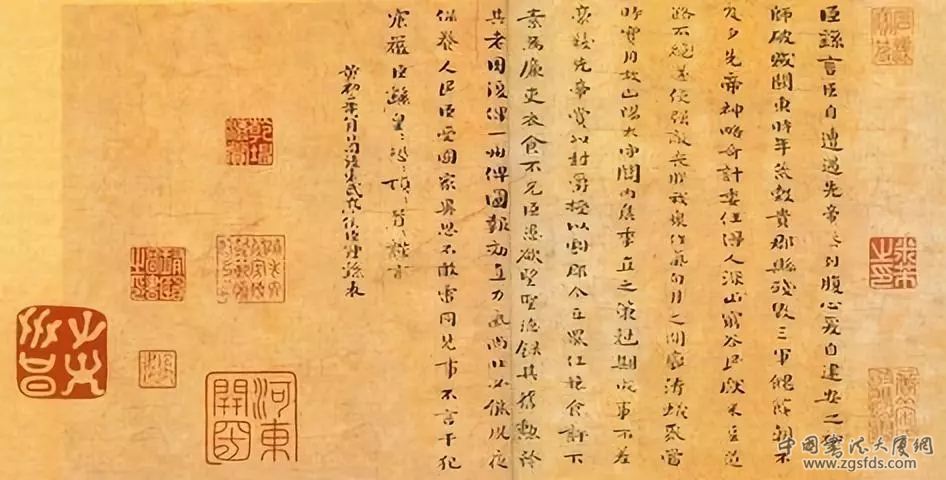 臣繇言臣自遭遇先帝忝列腹心爰自建安之初王
師破賊關東時年荒穀貴郡縣殘毀三軍餽饟朝不
及夕先帝神略奇計委任得人深山窮谷民獻米豆道
路不絕遂使強敵喪膽我眾作氣旬月之間廓清蟻聚當
時實用故山陽太守關內侯季直之策剋期成事不差
豪髮先帝賞以封爵授以劇郡今直罷任旅食許下
素為廉吏衣食不充臣愚欲望聖德錄其舊勳矜
其老困復俾一州俾圖報效直力氣尚壯必能夙夜
保養人民臣受國家異恩不敢雷同見事不言干犯
宸嚴臣繇皇〻恐〻頓〻首〻謹言
黃初二年八月日司徒東武亭侯臣鍾繇表
乾隆
河東
中国书法大厦網
www.zgsfds.com